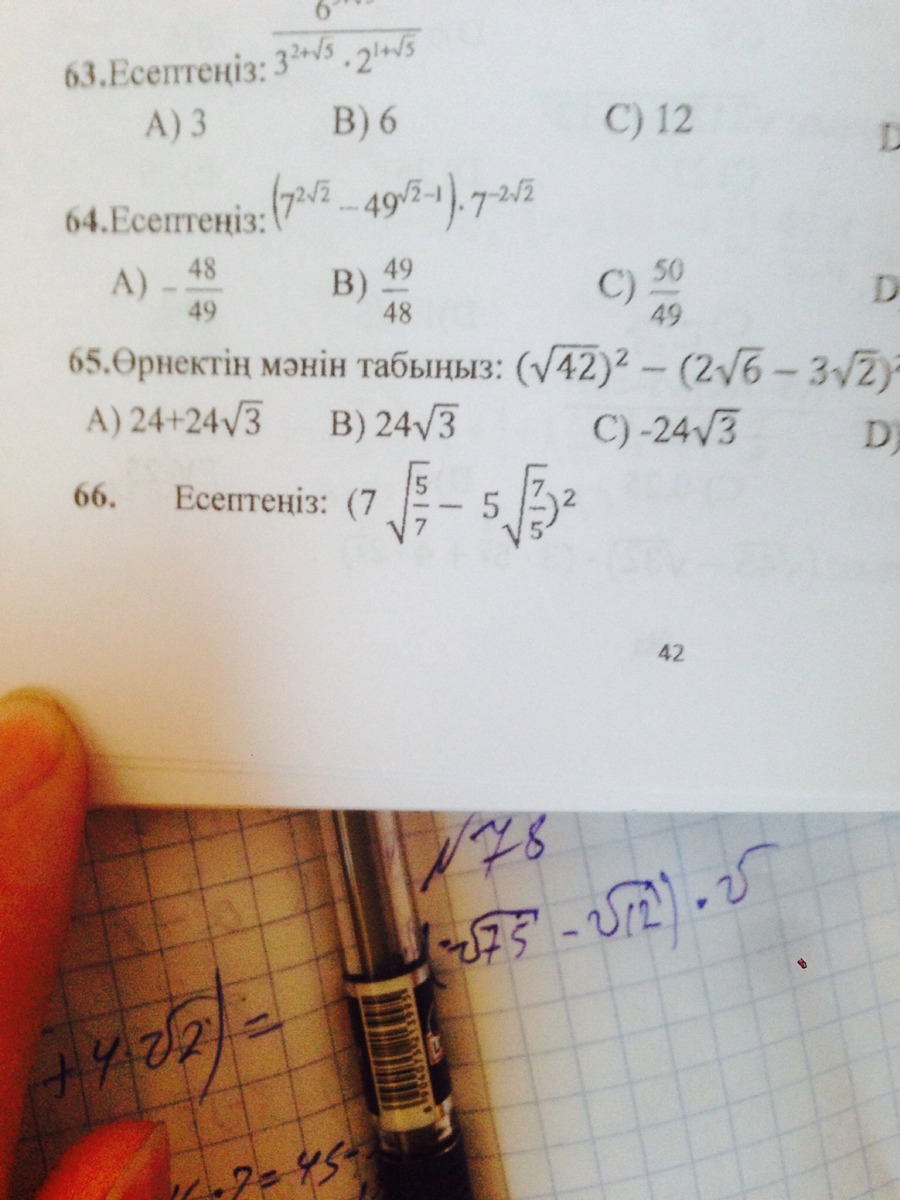 63.Есептеңіз: 6 / 3^{2+√5} · 2^{1+√5}
A) 3 B) 6 C) 12 D
64.Есептеңіз: (7^{2√2} − 49^{√2−1}) · 7^{−2√2}
A) - 48/49 B) 49/48 C) 50/49 D)
65.Өрнектің мәнін табыңыз: (√42)² − (2√6 − 3√2)²
A) 24+24√3 B) 24√3 C) -24√3 D)
66. Есептеңіз: (7 √5/7 − 5 √7/5)²
42
№78
√75 - √12) · √
+ 4·√2) =
· 7 = 45